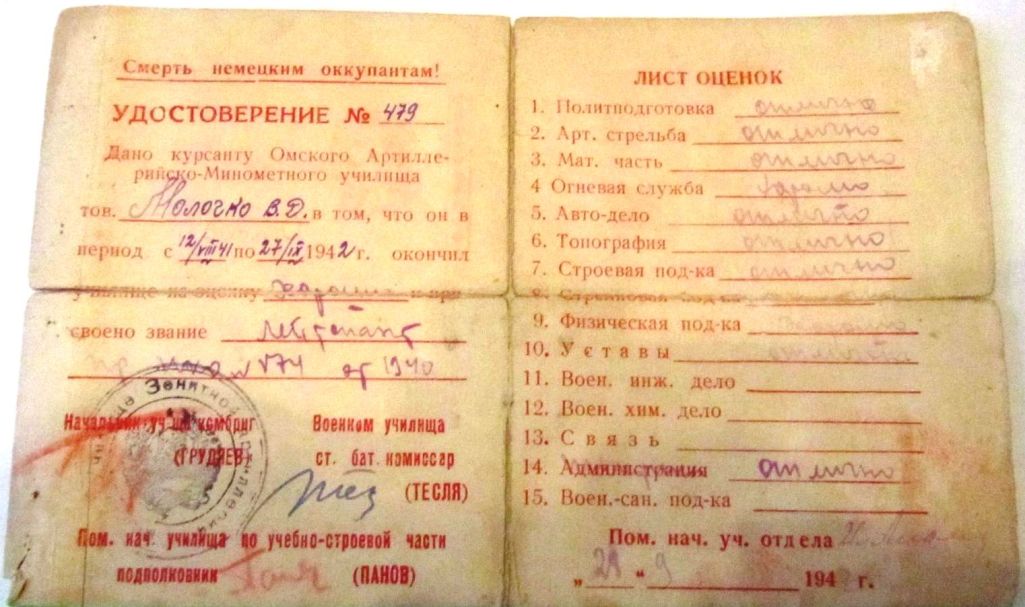 Смерть немецким оккупантам!
УДОСТОВЕРЕНИЕ № 479
Дано курсанту Омского Артилле-
рийско-Минометного училища
тов. Молочко В.Д. в том, что он в
период с 12/VIII 41 по 27/IX 1942 г. окончил
училище на оценку хорошо и при
своено звание лейтенант
пр. НКО № 874 от 1940
Зенитно
Начальник уч-ща комбриг
(ГРУДЯЕВ)
Военком училища
ст. бат. комиссар
(ТЕСЛЯ)
Пом. нач. училища по учебно-строевой части
подполковник (ПАНОВ)
ЛИСТ ОЦЕНОК
1. Политподготовка отлично
2. Арт. стрельба отлично
3. Мат. часть отлично
4 Огневая служба хорошо
5. Авто-дело отлично
6. Топография отлично
7. Строевая под-ка отлично
8. Стрелковая под-ка
9. Физическая под-ка хорошо
10. Уставы отлично
11. Воен. инж. дело
12. Воен. хим. дело
13. Связь
14. Администрация отлично
15. Воен.-сан. под-ка
Пом. нач. уч. отдела
„ 29 “ 9 194 г.